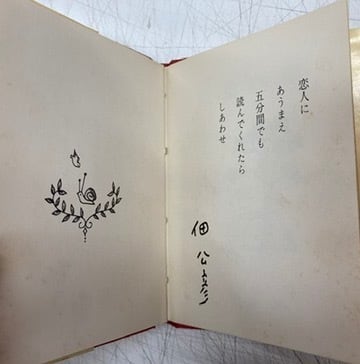 恋人に
あうまえ
五分間でも
読んでくれたら
しあわせ
佃公彦